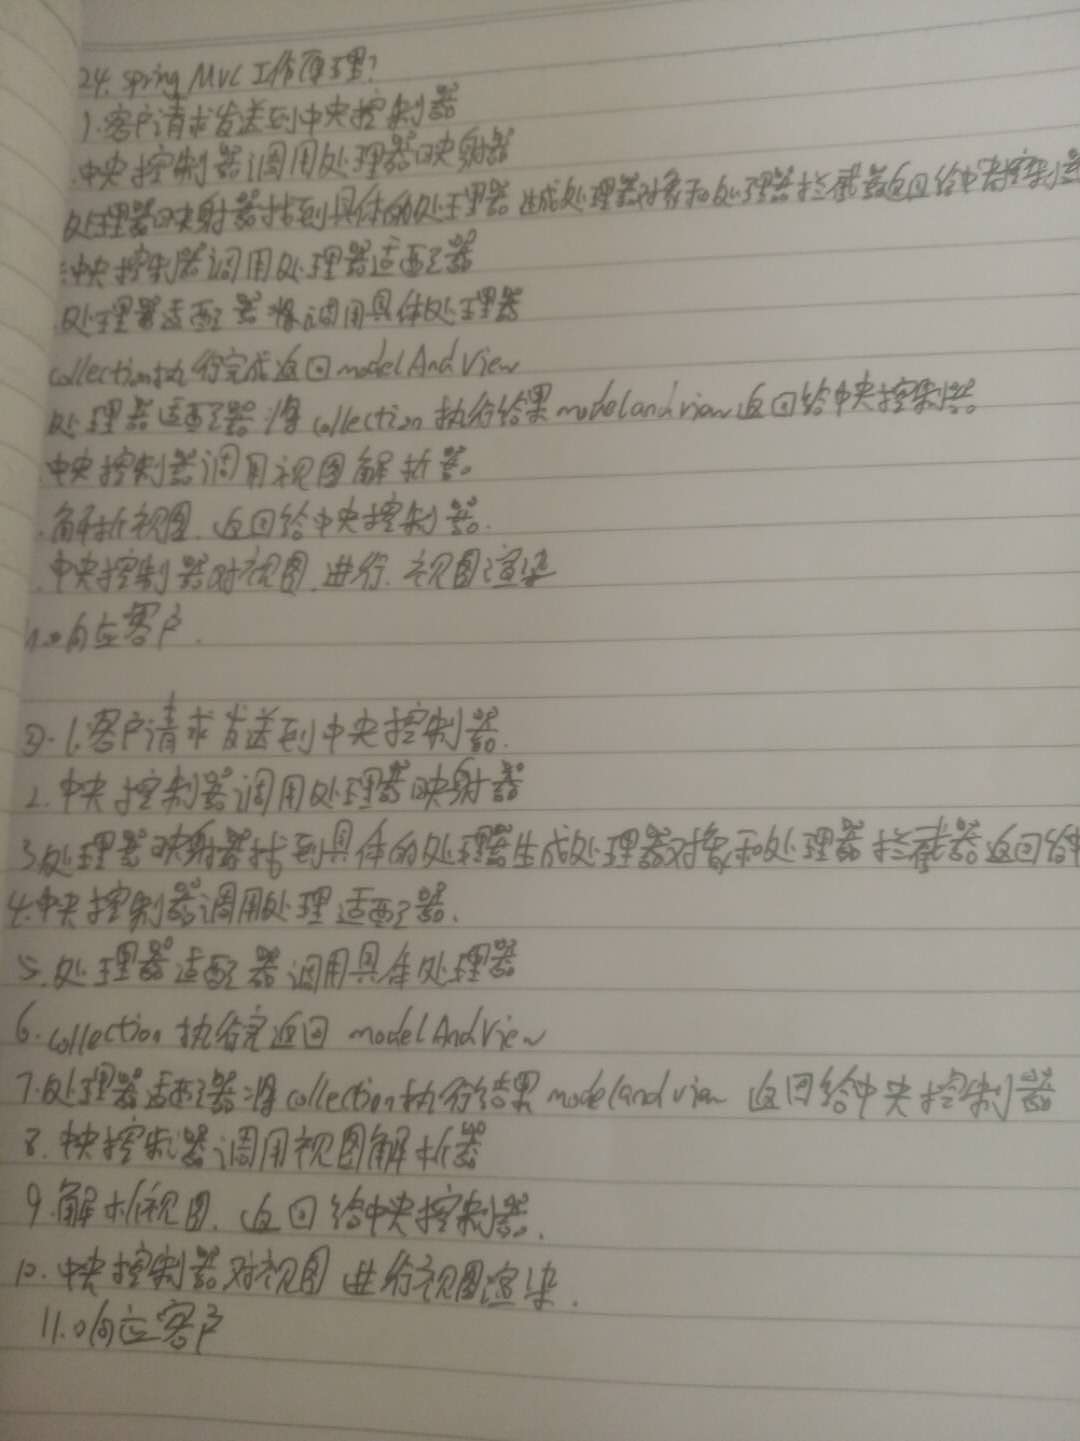 24. Spring MVC 工作原理?
1. 客户请求发送到中央控制器
中央控制器调用处理器映射器
处理器映射器找到具体的处理器 生成处理器对象和处理器拦截器返回给中央控制器
中央控制器调用处理器适配器
处理器适配器将调用具体处理器
collection执行完成返回 modelAndView
处理器适配器将 collection 执行结果 modelandview 返回给中央控制器.
中央控制器调用视图解析器.
解析视图. 返回给中央控制器.
中央控制器对视图. 进行. 视图渲染
响应客户.
②. 1. 客户请求发送到中央控制器.
2. 中央控制器调用处理器映射器
3. 处理器映射器找到具体的处理器生成处理器对象和处理器拦截器返回给中
4. 中央控制器调用处理适配器.
5. 处理器适配器调用具体处理器
6. collection 执行完返回 modelAndView
7. 处理器适配器将 collection执行结果 modelandview 返回给中央控制器
8. 中央控制器调用视图解析器
9. 解析视图. 返回给中央控制器.
10. 中央控制器对视图 进行视图渲染.
11. 响应客户